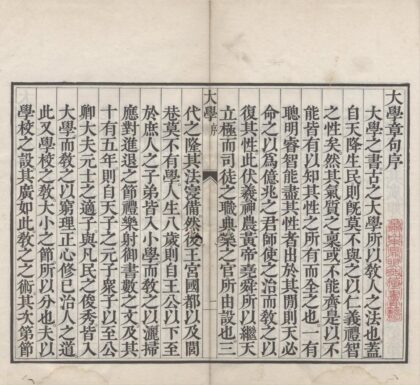 大學章句序
大學之書古之大學所以教人之法也蓋
自天降生民則既莫不與之以仁義禮智
之性矣然其氣質之稟或不能齊是以不
能皆有以知其性之所有而全之也一有
聰明睿智能盡其性者出於其閒則天必
命之以爲億兆之君師使之治而教之以
復其性此伏羲神農黃帝堯舜所以繼天
立極而司徒之職典樂之官所由設也三
大學 序
代之隆其法寖備然後王宮國都以及閭
巷莫不有學人生八歲則自王公以下至
於庶人之子弟皆入小學而教之以灑掃
應對進退之節禮樂射御書數之文及其
十有五年則自天子之元子眾子以至公
卿大夫元士之適子與凡民之俊秀皆入
大學而教之以窮理正心修己治人之道
此又學校之教大小之節所以分也夫以
學校之設其廣如此教之之術其次第節